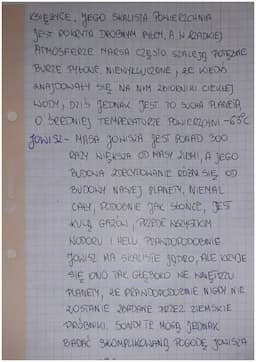 KSIĘŻYCE, JEGO SKALISTA POWIERZCHNIA
JEST POKRYTA DROBNYM PYŁEM, A W RZADKIEJ
ATMOSFERZE MARSA CZĘSTO SZALEJĄ POTĘŻNE
BURZE PYŁOWE, NIEWYKLUCZONE, ŻE KIEDYŚ
ZNAJDOWAŁY SIĘ NA NIM ZBIORNIKI CIEKŁEJ
WODY, DZIŚ JEDNAK JEST TO SUCHA PLANETA,
O ŚREDNIEJ TEMPERATURZE POWIERZCHNI -63°C
JOWISZ - MASA JOWISZA JEST PONAD 300
RAZY WIĘKSZA OD MASY ZIEMI, A JEGO
BUDOWA ZDECYDOWANIE RÓŻNI SIĘ OD
BUDOWY NASZEJ PLANETY, NIEMAL
CAŁY, PODOBNIE JAK SŁOŃCE, JEST
KULĄ GAZÓW, PRZEDE WSZYSTKIM
WODORU I HELU. PRAWDOPODOBNIE
JOWISZ MA SKALISTE JĄDRO, ALE KRYJE
SIĘ ONO TAK GŁĘBOKO WE WNĘTRZU
PLANETY, ŻE PRAWDOPODOBNIE NIGDY NIE
ZOSTANIE ZBADANE PRZEZ ZIEMSKIE
PRÓBNIKI. SONDY TE MOGĄ JEDNAK
BADAĆ SKOMPLIKOWANĄ POGODĘ JOWISZA